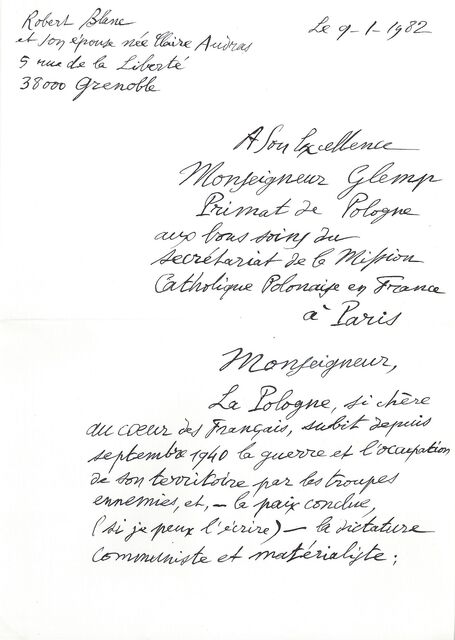 Robert Blanc
et son épouse née Claire Audras
5 rue de la Liberté
38000 Grenoble
Le 9-1-1982
A Son Excellence
Monseigneur Glemp
Primat de Pologne
aux bons soins du
secrétariat de la Mission
Catholique Polonaise en France
à Paris
Monseigneur,
La Pologne, si chère
au coeur des Français, subit depuis
septembre 1940 la guerre et l'occupation
de son territoire par les troupes
ennemies, et, – la paix conclue,
(si je peux l'écrire) – la dictature
communiste et matérialiste ;